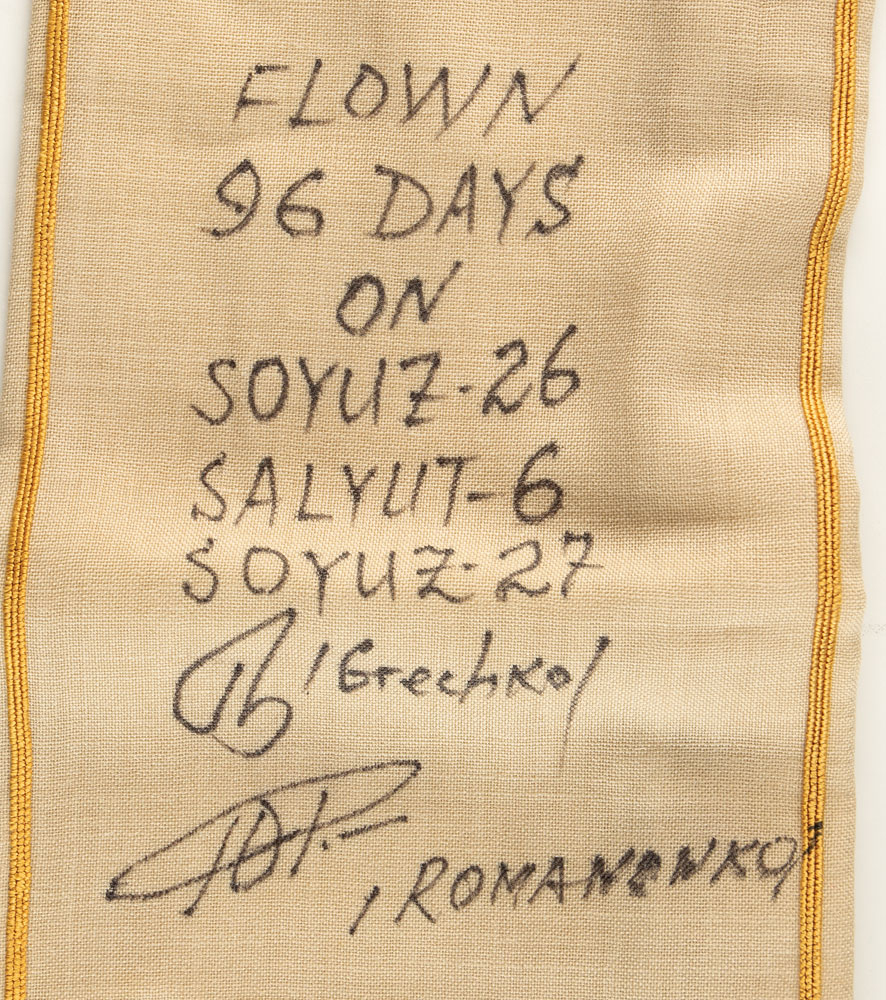 FLOWN
96 DAYS
ON
SOYUZ-26
SALYUT-6
SOYUZ-27
/Grechko/
/ROMANENKO/